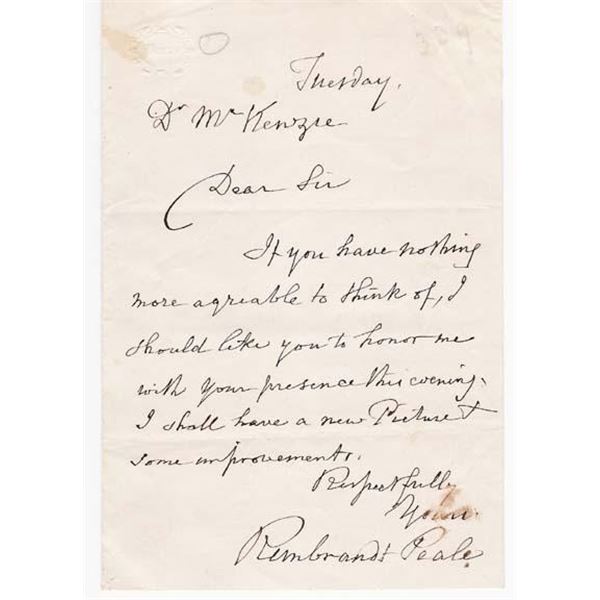 359
Tuesday.
Dr McKenzie
Dear Sir
If you have nothing
more agreable to think of, I
should like you to honor me
with your presence this evening.
I shall have a new Picture &
some improvements.
Respectfully
Yours
Rembrandt Peale